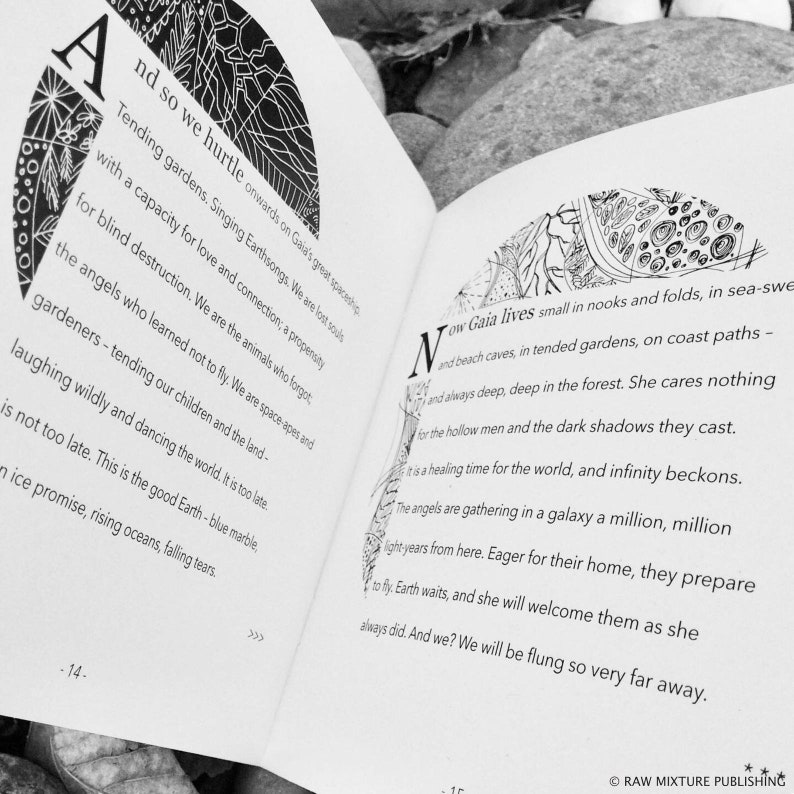 And so we hurtle onwards on Gaia's great spaceship.
Tending gardens. Singing Earthsongs. We are lost souls
with a capacity for love and connection; a propensity
for blind destruction. We are the animals who forgot;
the angels who learned not to fly. We are space-apes and
gardeners – tending our children and the land –
laughing wildly and dancing the world. It is too late.
is not too late. This is the good Earth – blue marble,
ice promise, rising oceans, falling tears.
>>>
- 14 -
Now Gaia lives small in nooks and folds, in
and beach caves, in tended gardens, on coast paths –
and always deep, deep in the forest. She cares nothing
for the hollow men and the dark shadows they cast.
It is a healing time for the world, and infinity beckons.
The angels are gathering in a galaxy a million, million
light-years from here. Eager for their home, they prepare
to fly. Earth waits, and she will welcome them as she
always did. And we? We will be flung so very far away.
***
- 15
© RAW MIXTURE PUBLISHING